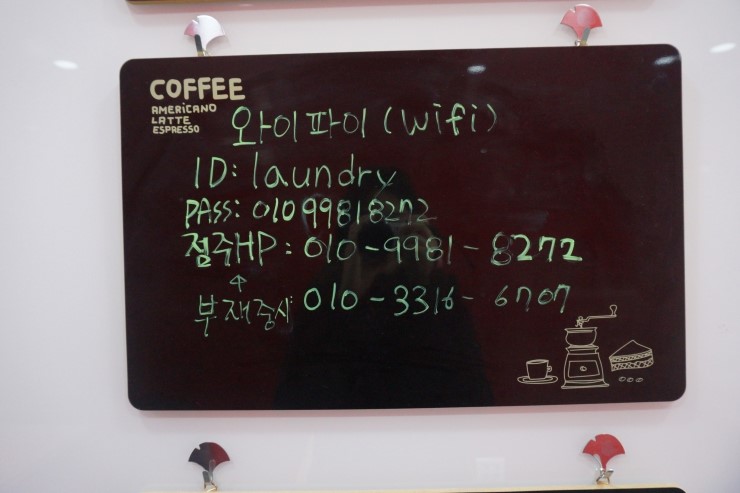 COFFEE
AMERICANO
LATTE
ESPRESSO
와이파이 (wifi)
ID: laundry
PASS: 01099818272
점주HP: 010-9981-8272
부재중시: 010-3316-6707